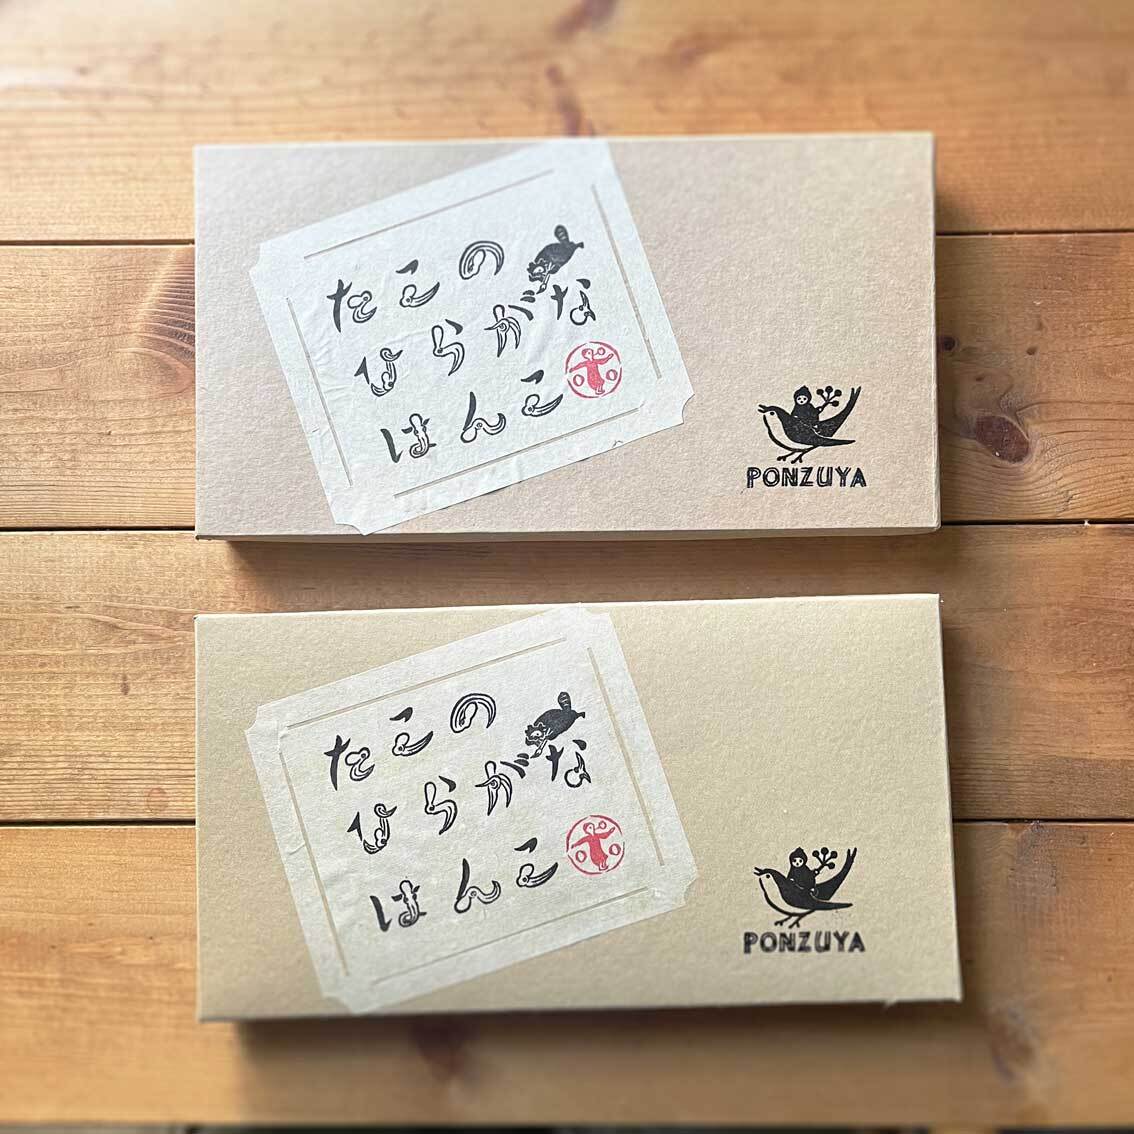 たこの
ひらがな
はんこ
PONZUYA
たこの
ひらがな
はんこ
PONZUYA